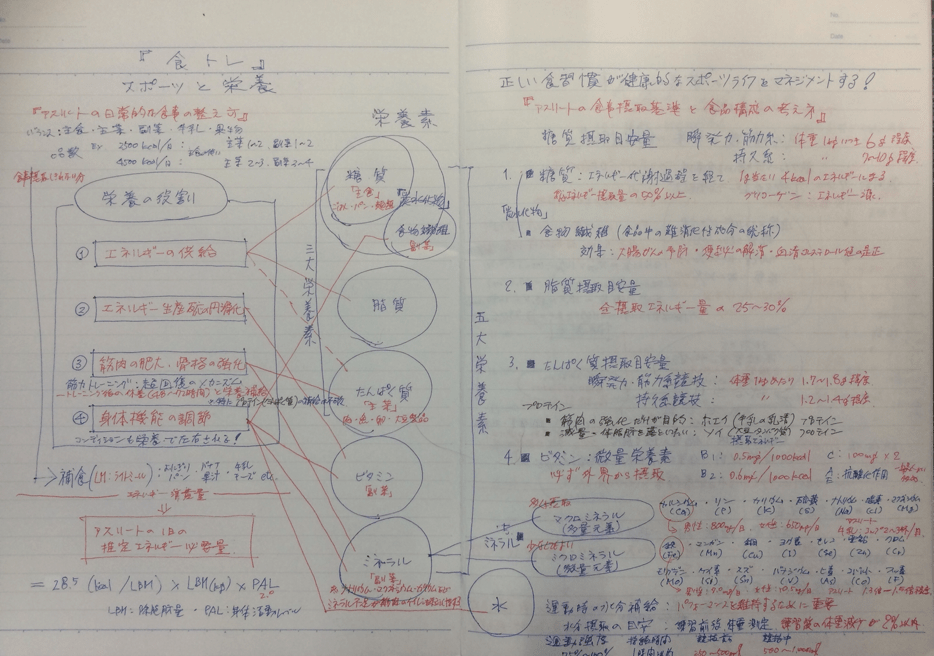 『食トレ』
スポーツと栄養
『アスリートの日常的な食事の整え方』
主食・主菜・副菜・牛乳・果物
品数 2500 kcal/日: 主菜1~2、副菜1~2
4500 kcal/日: 主菜2~3、副菜2~4
栄養の役割
① エネルギーの供給
② エネルギー生産反応の円滑化
③ 筋肉の肥大、骨格の強化
筋力トレーニング:超回復のメカニズム
④ 身体機能の調節
コンディションも栄養で左右される!
→補食(LM:ライトミール)・おにぎり・バナナ・果汁・牛乳・チーズ etc.
エネルギー消費量
アスリートの1日の
推定エネルギー必要量
= 28.5 (kcal/LBM) × LBM(kg) × PAL
2.0
LBM:除脂肪量・PAL:身体活動レベル
栄養素
三大栄養素
五大栄養素
糖質
「主食」
ごはん・パン・麺類
「炭水化物」
食物繊維
「副菜」
脂質
たんぱく質
「主菜」
肉・魚・卵・大豆製品
ビタミン
「副菜」
ミネラル
「副菜」
水
ミネラル
マクロミネラル
(多量元素)
ミクロミネラル
(微量元素)
正しい食習慣が健康的なスポーツライフをマネジメントする!
『アスリートの食事摂取基準と食品構成の考え方』
糖質摂取目安量 瞬発力・筋力系:体重1kgあたり6g程度
持久系: 〃 7~10g程度
1. 糖質:エネルギー代謝過程を経て 1gあたり4kcalのエネルギーになる
総エネルギー摂取量の50%以上 グリコーゲン:エネルギー源
「炭水化物」
食物繊維(食品中の難消化性成分の総称)
効果:大腸がん予防・便秘の解消・血清コレステロール値の是正
2. 脂質摂取目安量
全摂取エネルギー量の25~30%
3. たんぱく質摂取目安量
瞬発力・筋力系競技:体重1kgあたり1.7~1.8g程度
持久系競技: 〃 1.2~1.4g程度
プロテイン
筋肉の強化だけが目的:ホエイ(牛乳の乳清)プロテイン
減量・体脂肪を落としたい:ソイ(大豆たんぱく質)プロテイン
4. ビタミン:微量栄養素 B1:0.5mg/1000kcal C:100mg×2
必ず外界から摂取 B2:0.6mg/1000kcal 抗酸化作用
カルシウム(Ca)・リン(P)・カリウム(K)・硫黄(S)・ナトリウム(Na)・塩素(Cl)・マグネシウム(Mg)
鉄(Fe)・マンガン(Mn)・銅(Cu)・ヨウ素(I)・セレン(Se)・亜鉛(Zn)・クロム(Cr)
モリブデン(Mo)・ケイ素(Si)・スズ(Sn)・バナジウム(V)・ヒ素(As)・コバルト(Co)・フッ素(F)
運動時の水分補給:パフォーマンスを維持するために重要
水分摂取の目安:練習前後 体重測定 練習後の体重減少が2%以内
運動強度 持続時間 競技前 競技中
1時間以内 250~500ml 500~1000ml